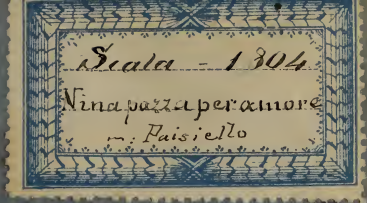 Scala - 1804
Nina pazza per amore
m: Paisiello